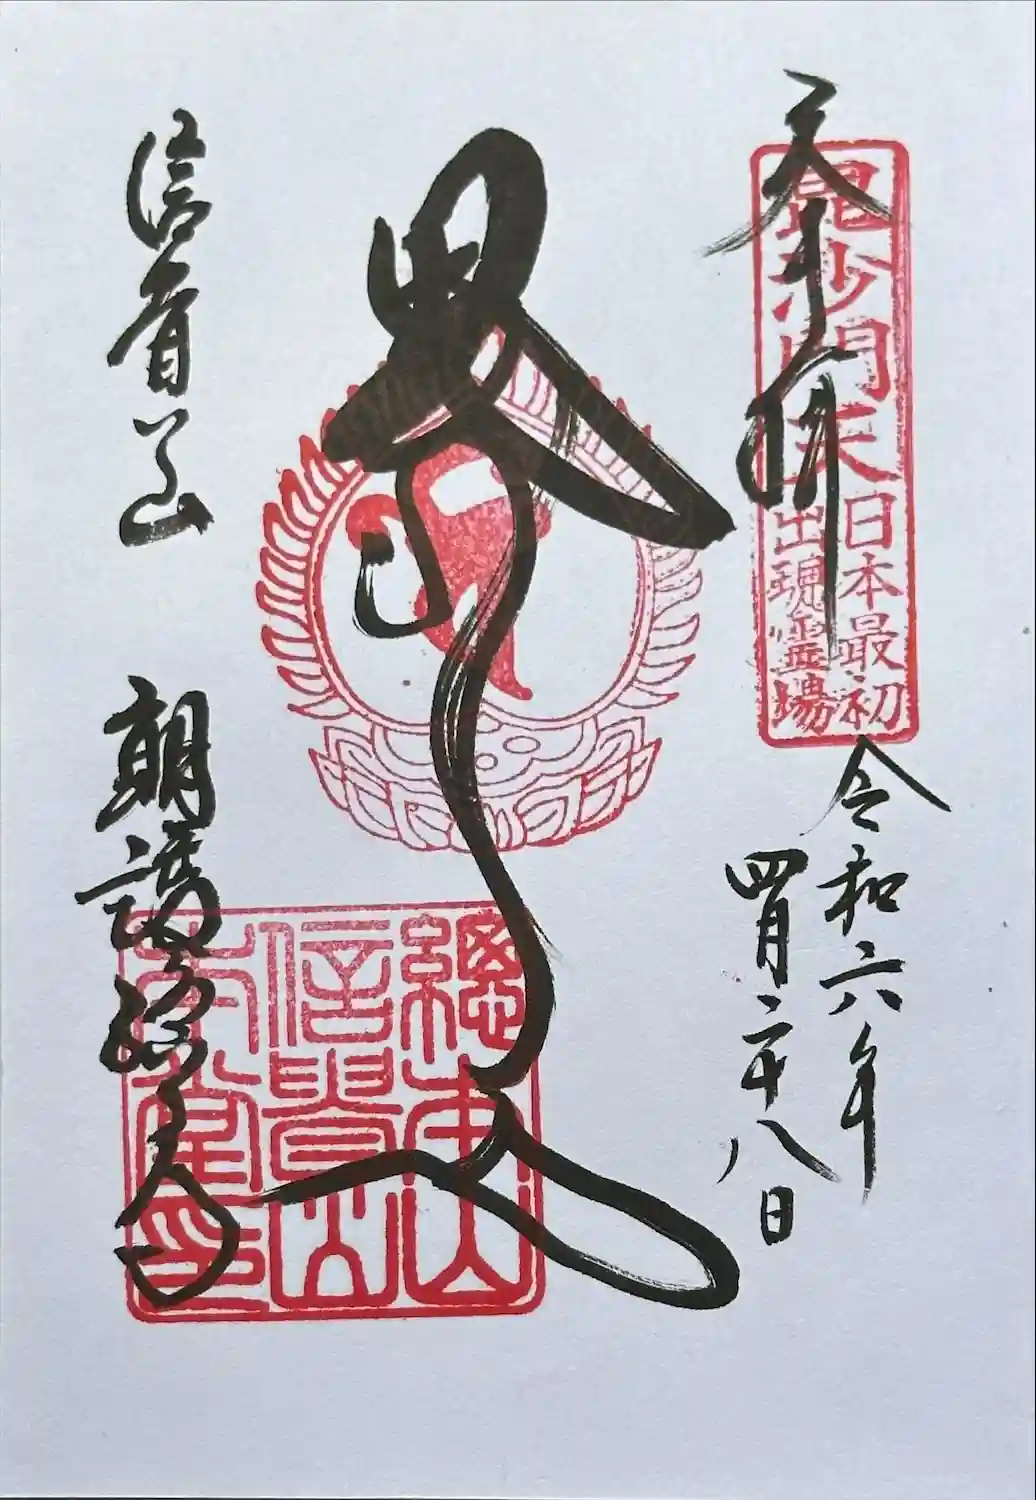 奉拝
毘沙門天
日本最初
出現霊場
令和六年
四月二十八日
信貴山
朝護孫子寺
總本山
信貴山
本堂印